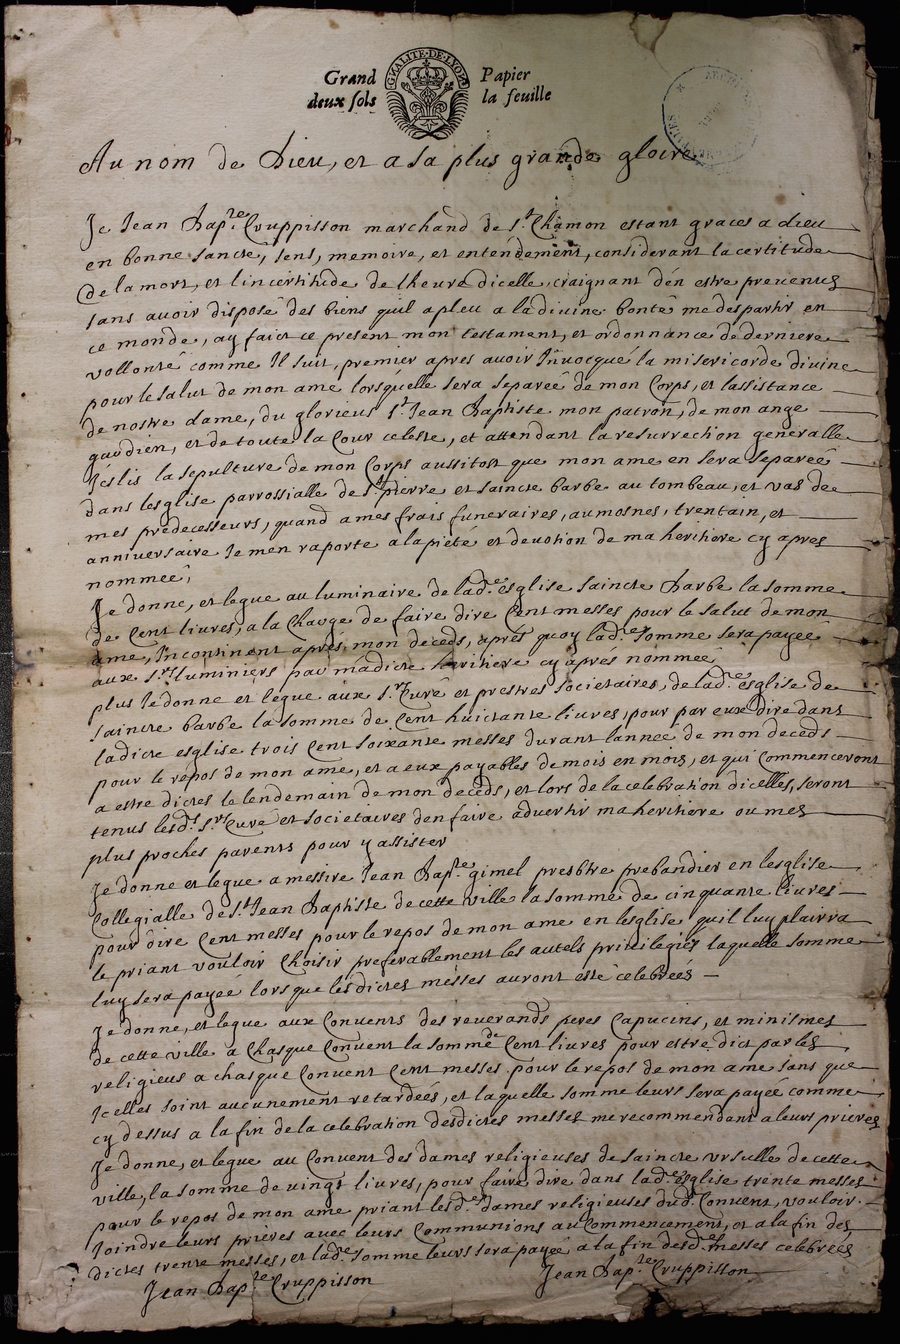 GNALITE·DE·LYON
Grand Papier
deux sols la feuille
Au nom de Dieu, et a sa plus grande gloire
Je Jean Bap.te Cruppisson marchand de S.t Chamon estant graces a dieu
en bonne sancte, sens, memoire, et entendement, considerant la certitude
de la mort, et lincertitude de lheure dicelle, craignant dén estre preuenus
sans auoir disposé des biens quil a pleu a la diuine bonté me despartir en
ce monde, ay faict ce present mon testament, et ordonnance de derniere
vollonté comme Il suit, premier apres auoir Inuocqué la misericorde diuine
pour le salut de mon ame lorsquelle sera separeé de mon Corps, et lassistance
de nostre dame, du glorieus S.t Jean Baptiste mon patron, de mon ange
gardien, et de toute la Cour celeste, et attendant la resurrection generalle
Jeslis la sepulture de mon Corps aussitost que mon ame en sera separeé
dans lesglise parrossialle de S.t pierre et saincte barbe au tombeau, et vas de
mes predecesseurs, quand a mes frais funeraires, aumosnes, trentain, et
anniversaire Je men raporte a la pieté et deuotion de ma heritiere cy apres
nommeé,
Je donne, et legue au luminaire de lad.e esglise saincte Barbe la somme
de Cent liures, a la Charge de faire dire Cent messes pour le salut de mon
ame, Incontinent aprés mon deceds, aprés quoy lad.e somme sera payeé
aux S.rs luminiers par madicte heritiere cy aprés nommeé
plus Je donne et legue aux S.rs Curé et prestres societaires, de lad.e esglise de
saincte barbe la somme de Cent huictante liures, pour par eux dire dans
ladicte esglise trois Cent soixante messes durant lanneé de mon deceds
pour le repos de mon ame, et a eux payables de mois en mois, et qui Commenceront
a estre dictes le lendemain de mon deceds, et lors de la celebration dicelles, seront
tenus lesd.s S.rs Curé et societaires den faire aduertir ma heritiere ou mes
plus proches parents pour y assister
Je donne et legue a messire Jean Bap.te gimel presbtre prebandier en lesglise
Collegialle de S.t Jean Baptiste de cette ville la somme de cinquante liures
pour dire Cent messes pour le repos de mon ame en lesglise quil luy plairra
le priant vouloir Choisir preferablement les autels priuilegiés laquelle somme
luy sera payee lorsque lesdictes messes auront esté celebreés
Je donne, et legue aux Conuents des reuerands peres Capucins, et minismes
de cette ville a Chasque Conuent la somme de Cent liures pour estre dict par les
religieus a chasque Conuent Cent messes pour le repos de mon ame sans que
Jcelles soint aucunement retardeés, et laquelle somme leurs sera payeé comme
cy dessus a la fin de la celebration desdictes messes me recommendant a leurs prieres
Je donne, et legue au Conuent des dames religieuses de saincte vrsulle de cette
ville, la somme de vingt liures, pour faire dire dans lad.e esglise trente messes
pour le repos de mon ame priant lesd.es dames religieuses dud. Conuent, vouloir
Joindre leurs prieres auec leurs Communions au Commencement, et a la fin des
dictes trente messes, et lad.e somme leurs sera payeé a la fin desd.es messes celebreés
Jean Bap.te Cruppisson Jean Bap.te Cruppisson